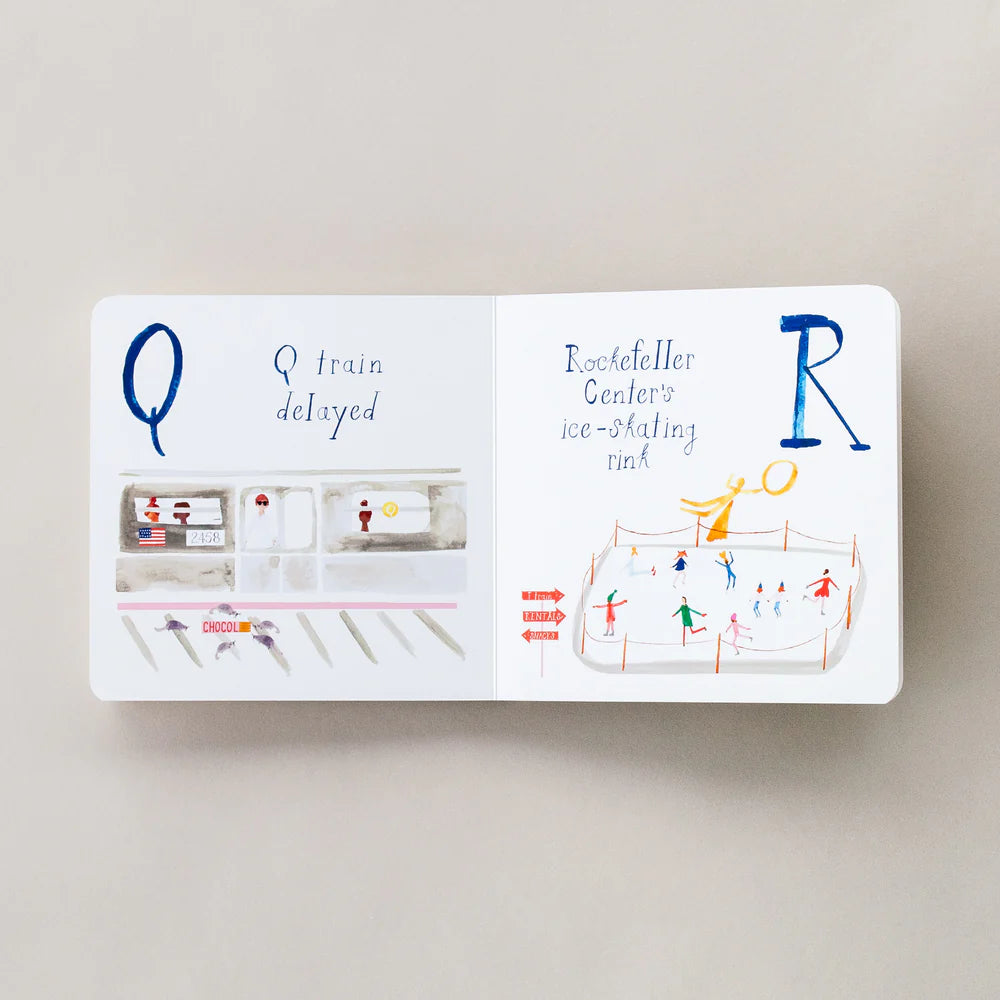 Q
Q train
delayed
2458
Q
CHOCOL
R
Rockefeller
Center's
ice-skating
rink
train
RENTALS
SNACKS